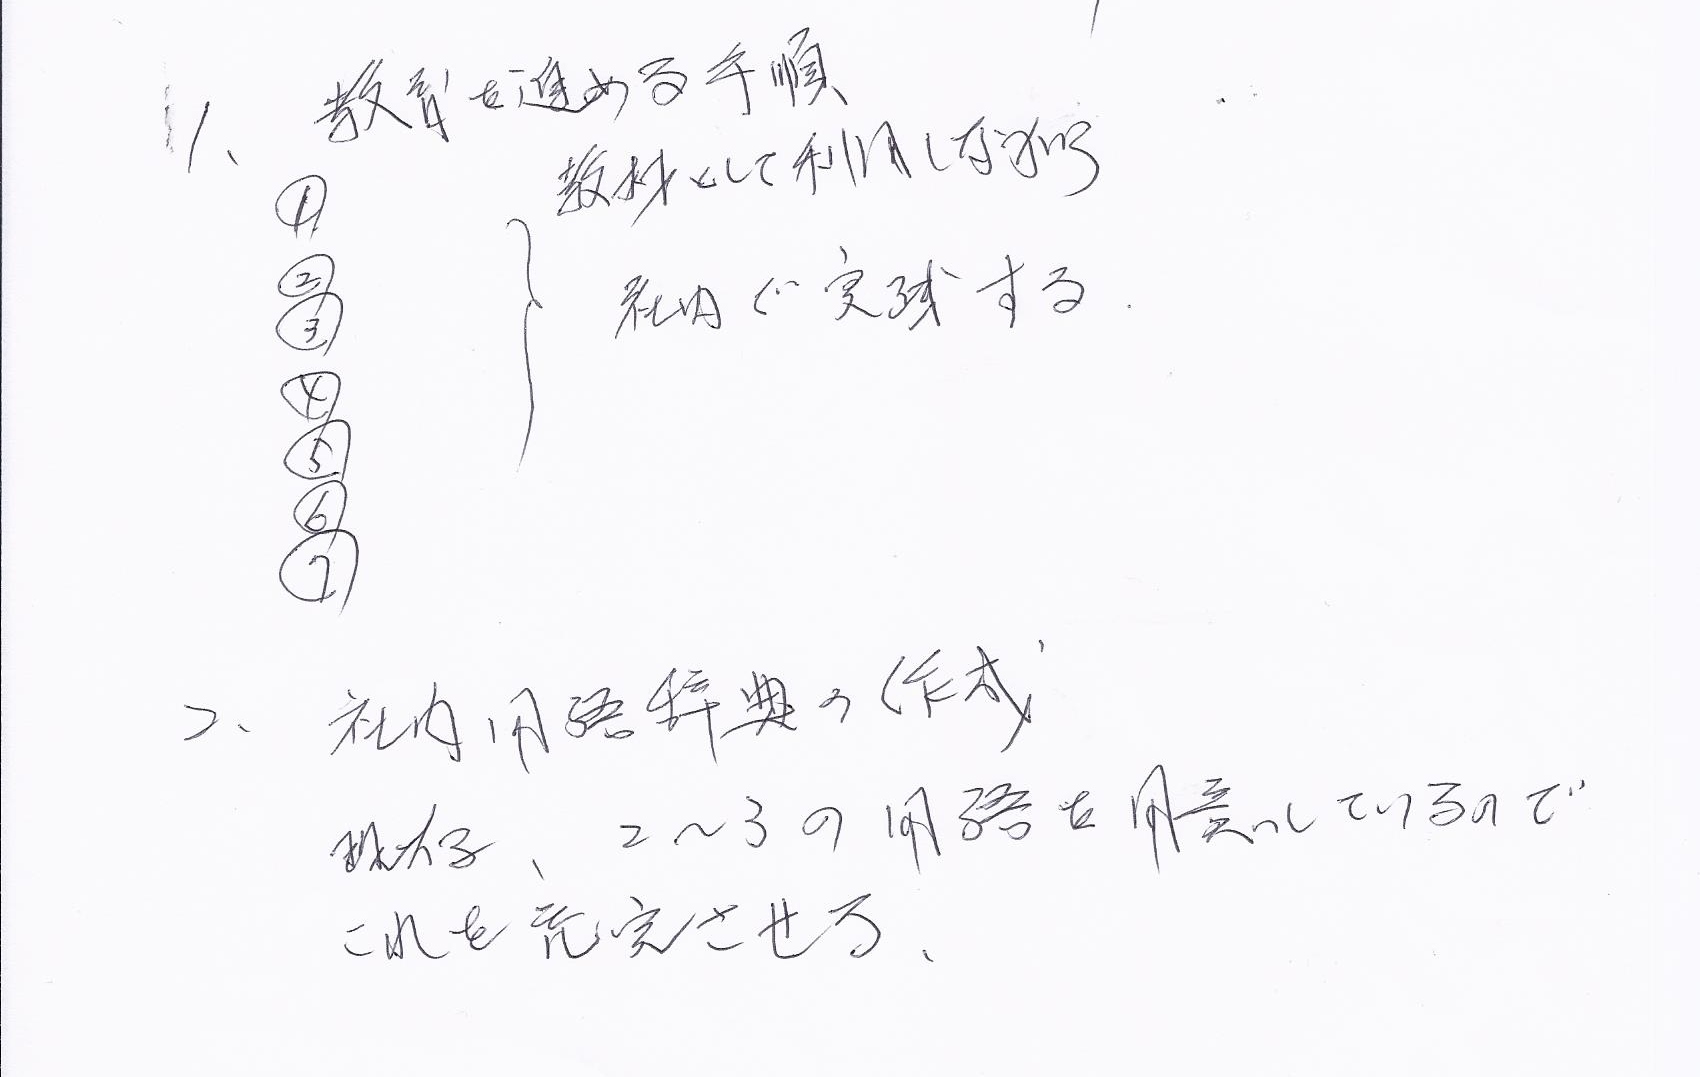 1、 教育を進める手順
教材として利用しながら
①
②
社内で実践する.
③
④
⑤
⑥
⑦
2、 社内用語辞典の作成
現在、2〜3の用語を用意しているので
これを充実させる、